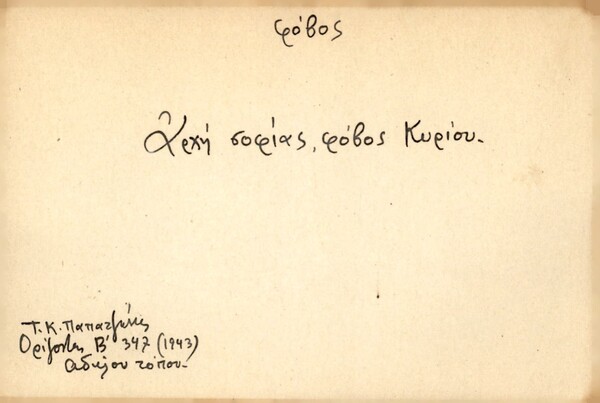 φόβος
Ἀρχή σοφίας, φόβος Κυρίου.
Τ. Κ. Παπατζώνης
Ορίζοντες Β' 347 (1943)
αδήλου τόπου.